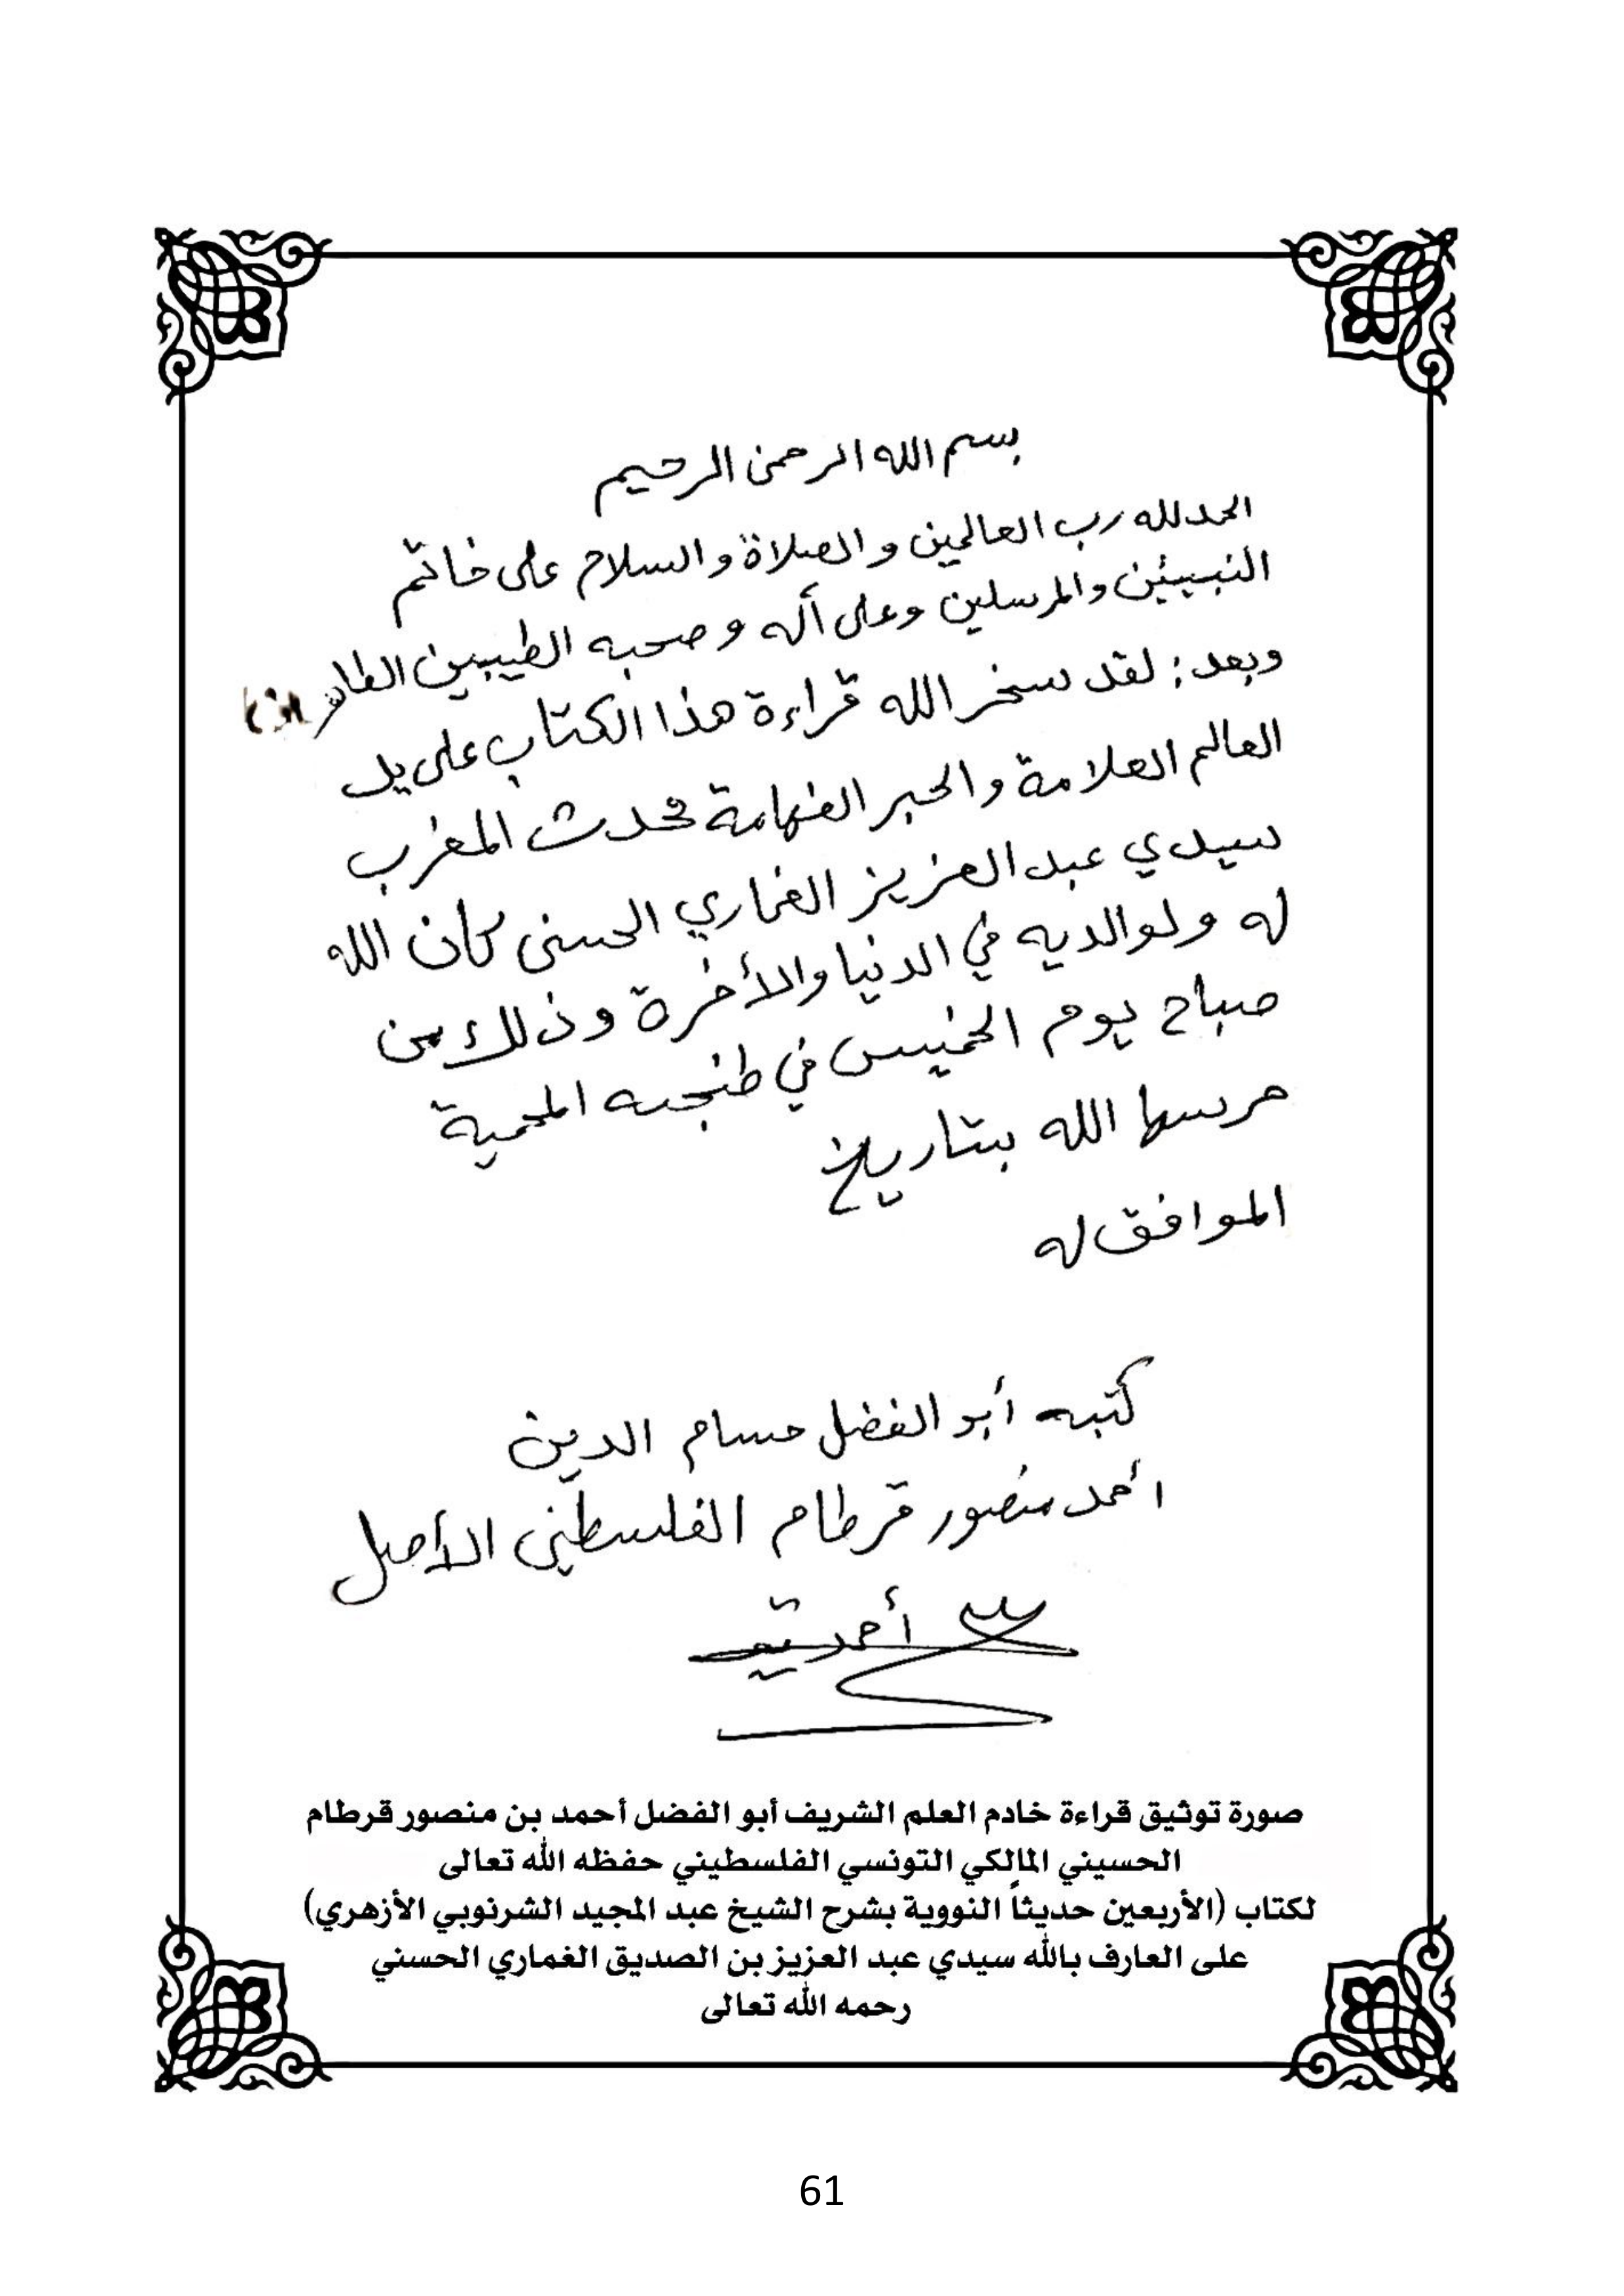 بسم الله الرحمن الرحيم
الحمد لله رب العالمين والصلاة والسلام على خاتم
النبيين والمرسلين وعلى آله وصحبه الطيبين
وبعد: لقد سخر الله قراءة هذا الكتاب على يد
العالم العلامة والحبر الفهامة محدث المغرب
سيدي عبد العزيز الغماري الحسني كان الله
له ولوالديه في الدنيا والأخرة وذلك من
صباح يوم الخميس في طنجه المحمية
حرسها الله بتاريخ
الموافق له
كتبه أبو الفضل حسام الدين
أحمد منصور قرطام الفلسطيني الأصل
أحمد
صورة توثيق قراءة خادم العلم الشريف أبو الفضل أحمد بن منصور قرطام
الحسيني المالكي التونسي الفلسطيني حفظه الله تعالى
لكتاب (الأربعين حديثاً النووية بشرح الشيخ عبد المجيد الشرنوبي الأزهري)
على العارف بالله سيدي عبد العزيز بن الصديق الغماري الحسني
رحمه الله تعالى
61